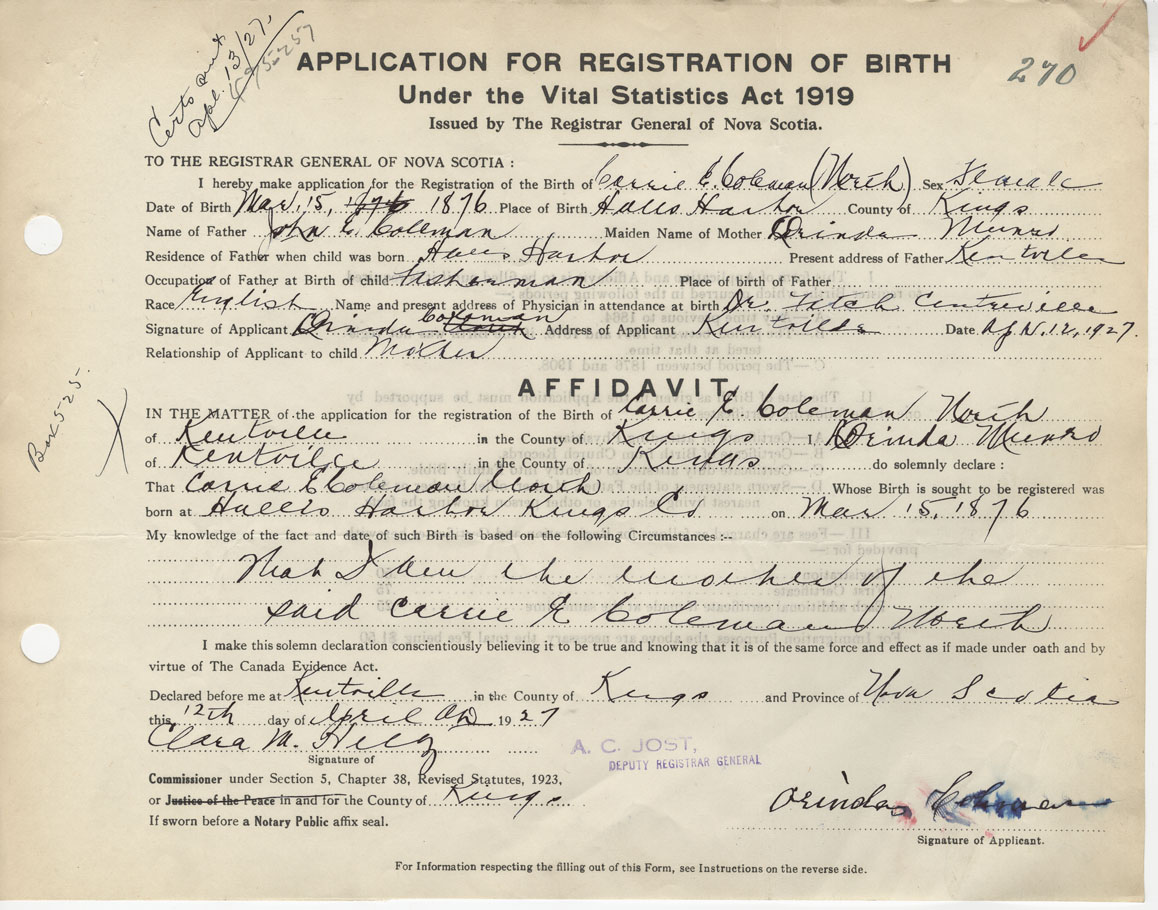 Certs sent
Apl. 13/27.
495257
APPLICATION FOR REGISTRATION OF BIRTH
270
Under the Vital Statistics Act 1919
Issued by The Registrar General of Nova Scotia.
TO THE REGISTRAR GENERAL OF NOVA SCOTIA :
I hereby make application for the Registration of the Birth of Carrie E. Coleman (North) Sex Female
Date of Birth Mar. 15, 1876 1876 Place of Birth Halls Harbor County of Kings
Name of Father John E Coleman Maiden Name of Mother Orinda Munro
Residence of Father when child was born Halls Harbor Present address of Father Kentville
Occupation of Father at Birth of child Fisherman Place of birth of Father
Race English Name and present address of Physician in attendance at birth Dr. Fitch Centreville
Signature of Applicant Orinda Coleman Address of Applicant Kentville Date Apl. 12, 1927.
Relationship of Applicant to child Mother
AFFIDAVIT
IN THE MATTER of the application for the registration of the Birth of Carrie E. Coleman North
of Kentville in the County of Kings I, Orinda Munro
of Kentville in the County of Kings do solemnly declare :
That Carrie E Coleman North Whose Birth is sought to be registered was
born at Halls Harbor Kings Co on Mar 15, 1876
My knowledge of the fact and date of such Birth is based on the following Circumstances :--
That I am the mother of the
said Carrie E Coleman North
I make this solemn declaration conscientiously believing it to be true and knowing that it is of the same force and effect as if made under oath and by
virtue of The Canada Evidence Act.
Declared before me at Kentville in the County of Kings and Province of Nova Scotia
this 12th day of April AD 1927
Clara M.
Signature of
A. C. JOST,
DEPUTY REGISTRAR GENERAL
Commissioner under Section 5, Chapter 38, Revised Statutes, 1923,
or Justice of the Peace in and for the County of Kings
If sworn before a Notary Public affix seal.
Orinda Coleman
Signature of Applicant.
For Information respecting the filling out of this Form, see Instructions on the reverse side.
Box 525.